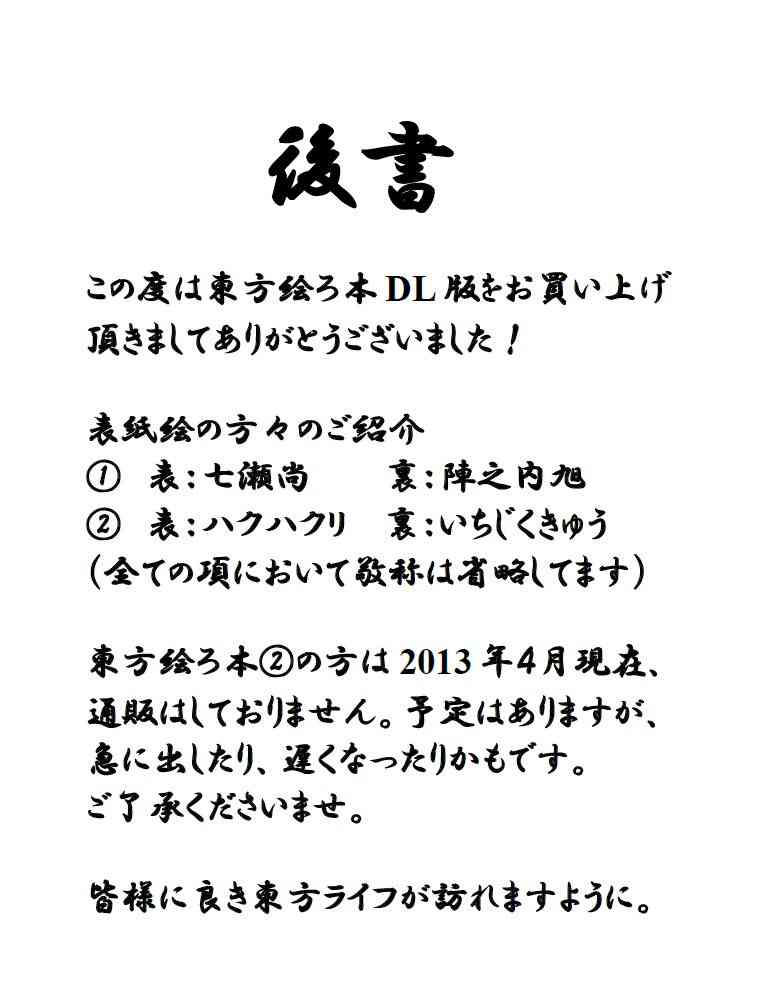 後書
この度は東方絵ろ本DL版をお買い上げ
頂きましてありがとうございました！
表紙絵の方々のご紹介
① 表：七瀬尚 裏：陣之内旭
② 表：ハクハクリ 裏：いちじくきゅう
（全ての項において敬称は省略してます）
東方絵ろ本②の方は2013年４月現在、
通販はしておりません。予定はありますが、
急に出したり、遅くなったりかもです。
ご了承くださいませ。
皆様に良き東方ライフが訪れますように。